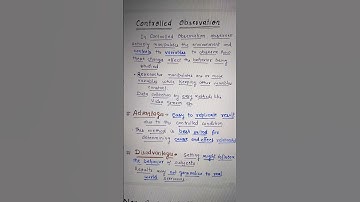 Controlled Observation
In Controlled Observation observer
actively manipulates the environment and
controls the variables to observe how
these change affect the behavior being
studied
- Researcher manipulates one or more
variables while keeping other variables
constant
- Data collection by using methods like
video camera etc
Advantage - Easy to replicate result
due to the controlled condition
This method is best suited for
determining cause and effect relationship
Disadvantage - Setting might influence
the behavior of subjects
Results may not generalize to real
world